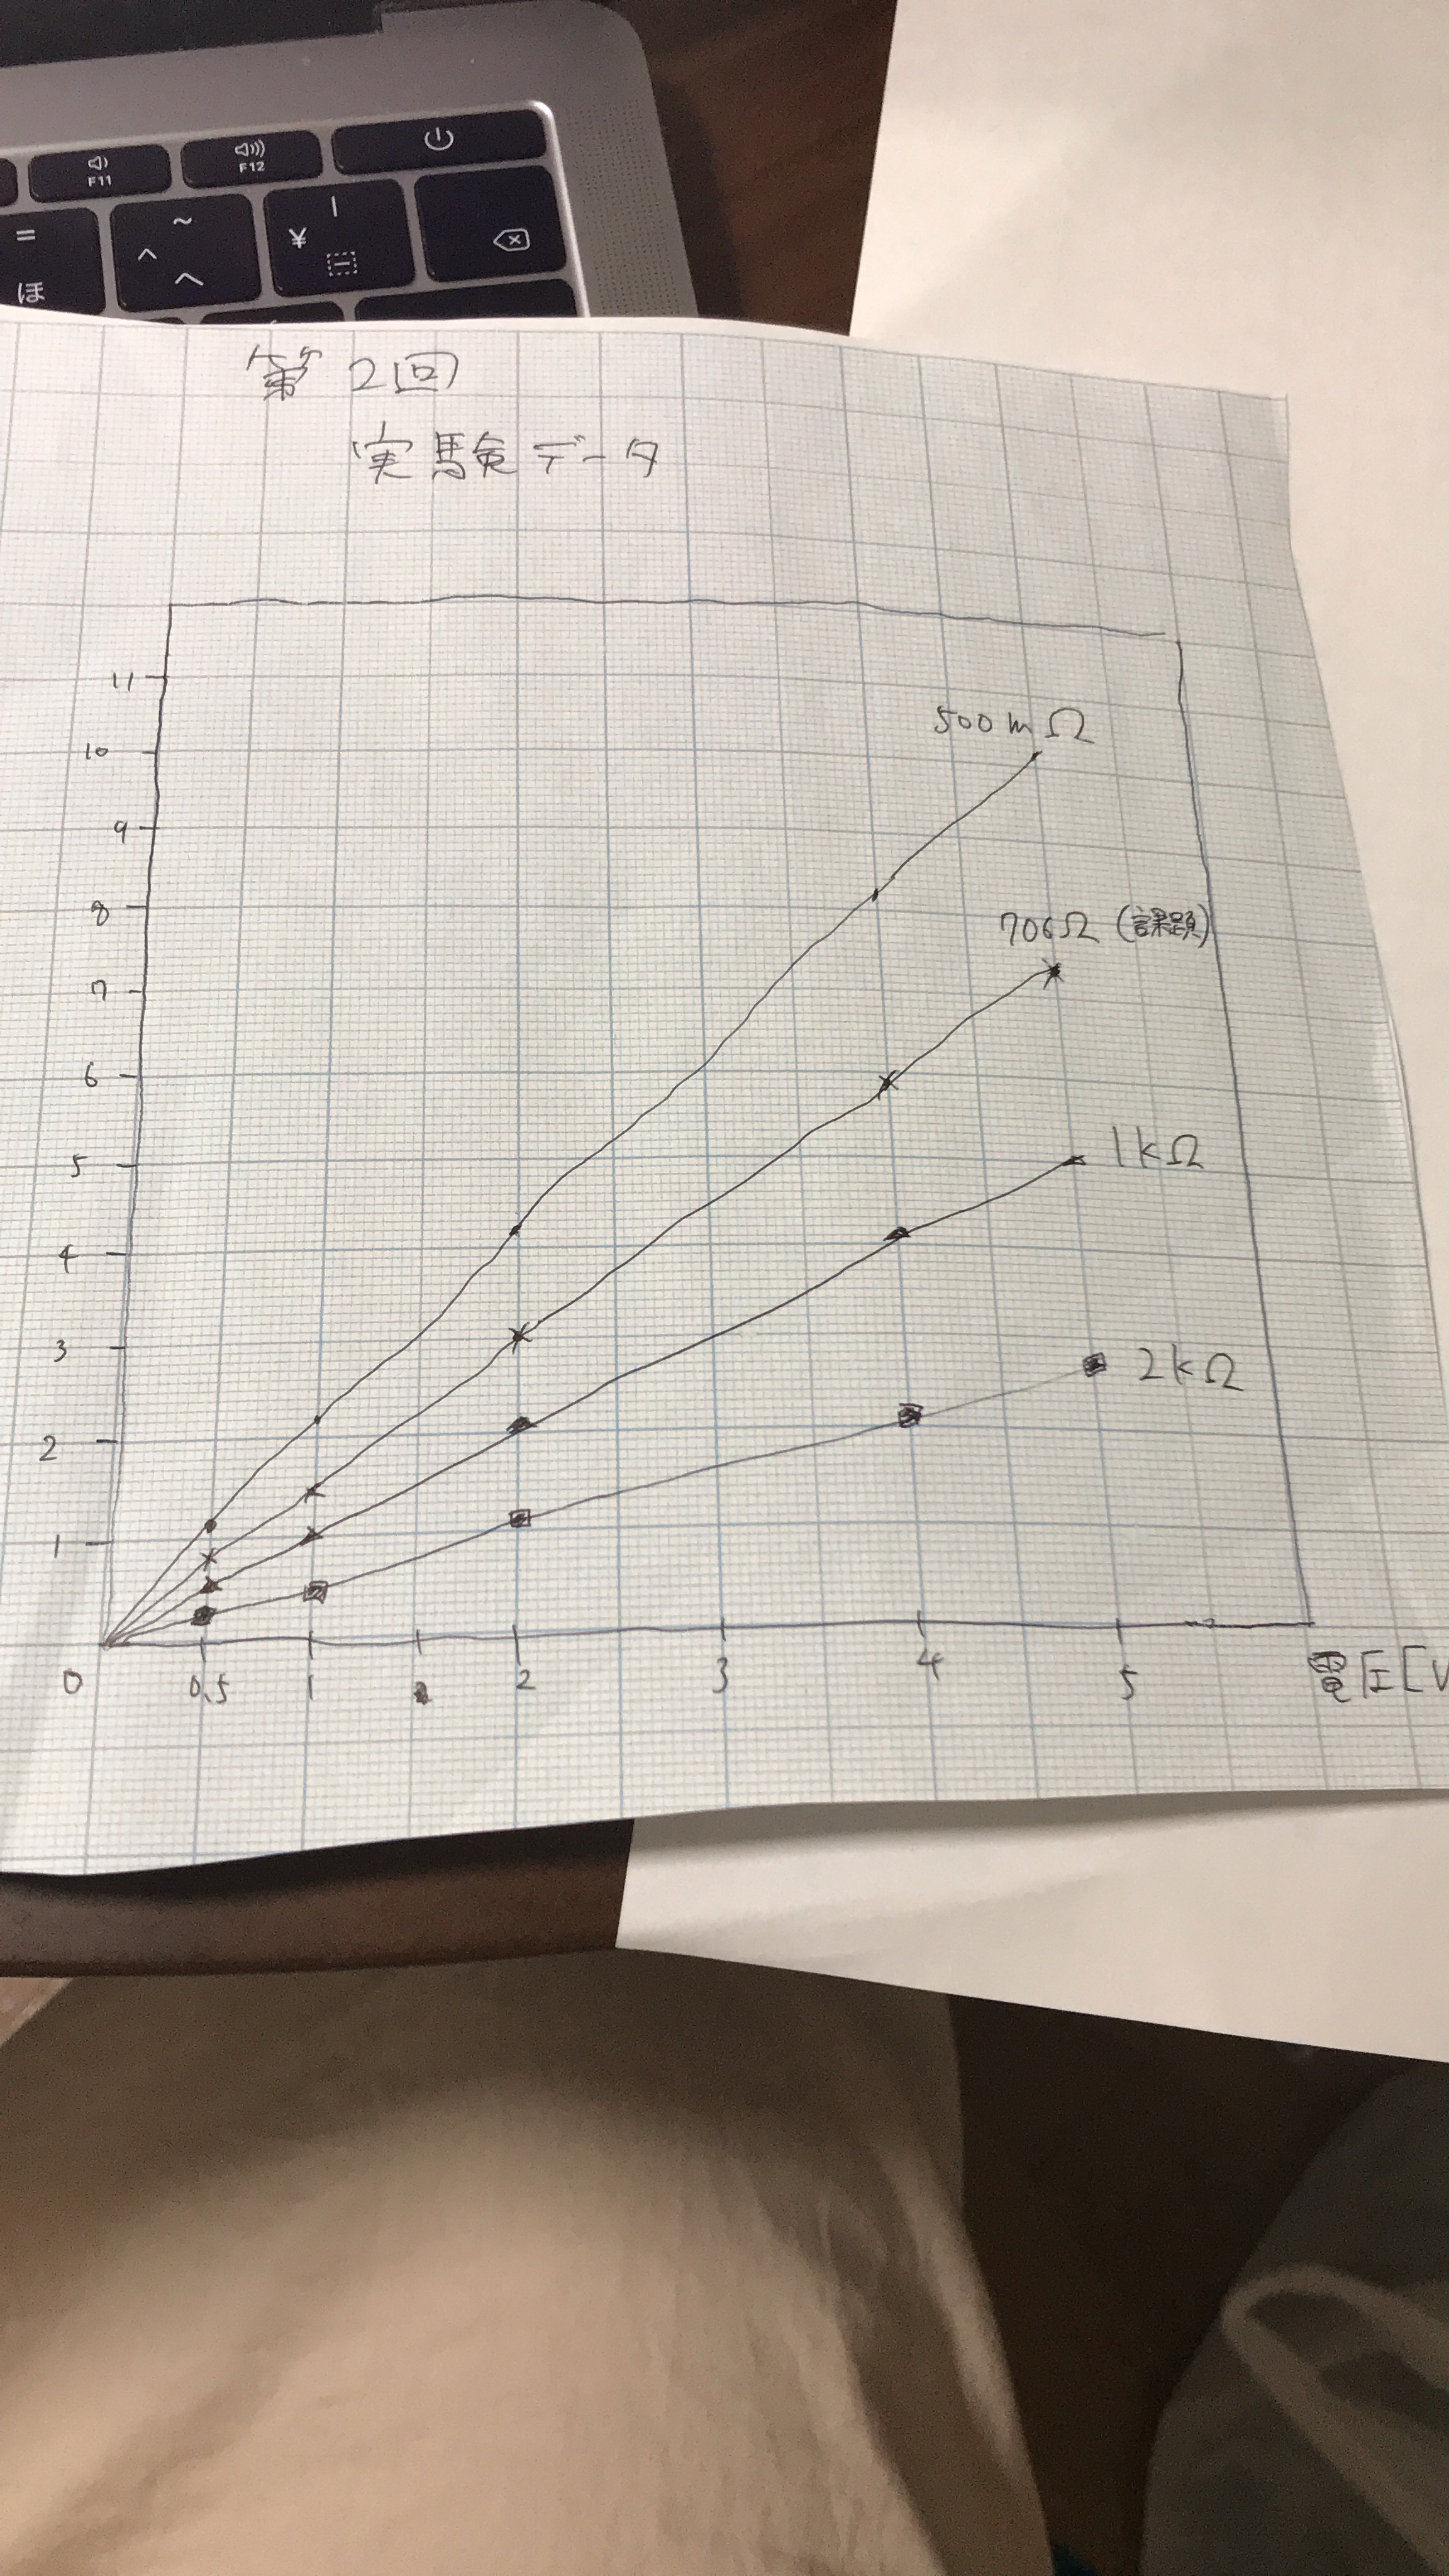 F11
F12
= ~ |
^ ¥
ほ へ
第2回
実験データ
11
10
9
8
7
6
5
4
3
2
1
500mΩ
706Ω (課題)
1kΩ
2kΩ
0 0.5 1 2 3 4 5 電圧[V